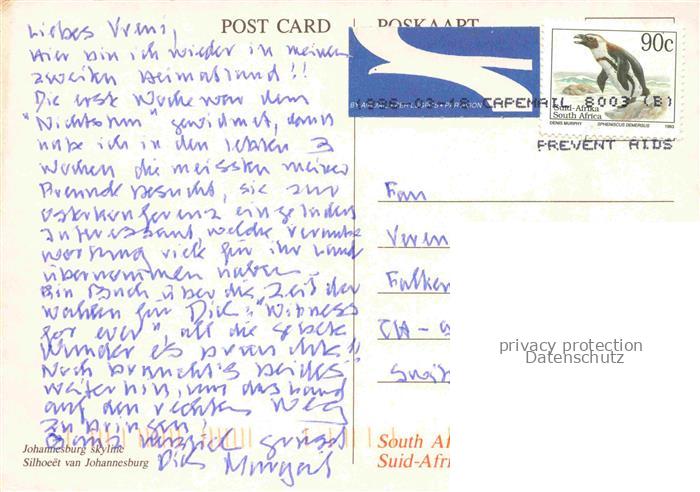 POST CARD
POSKAART
Liebes Vreni,
Hier bin ich wieder in meinem
zweiten Heimatland!!
Die erste Woche war dem
"Nichtstun" gewidmet, dann
habe ich in den letzten 3
Wochen die meissten meiner
Freunde besucht, sie zur
osterkonferenz eingeladen
Interessant, welche Verantw
wortung viele für ihr Land
übernommen haben.
Ein Buch über die Zeit der
Wahlen für Dich: "Witness
for ever", all die Gebete
Wunder
Noch braucht's beides
weiterhin, um das Land
auf den rechten Weg
zu bringen!
grüsst
Dich Margrit
Johannesburg skyline
Silhoeët van Johannesburg
CAPEMAIL 8003 (B)
PREVENT AIDS
90c
Suid-Afrika
South Africa
DENIS MURPHY
SPHENISCUS DEMERSUS
1993
Frau
Veren
Falken
CH-
privacy protection
Datenschutz
South Af
Suid-Afri